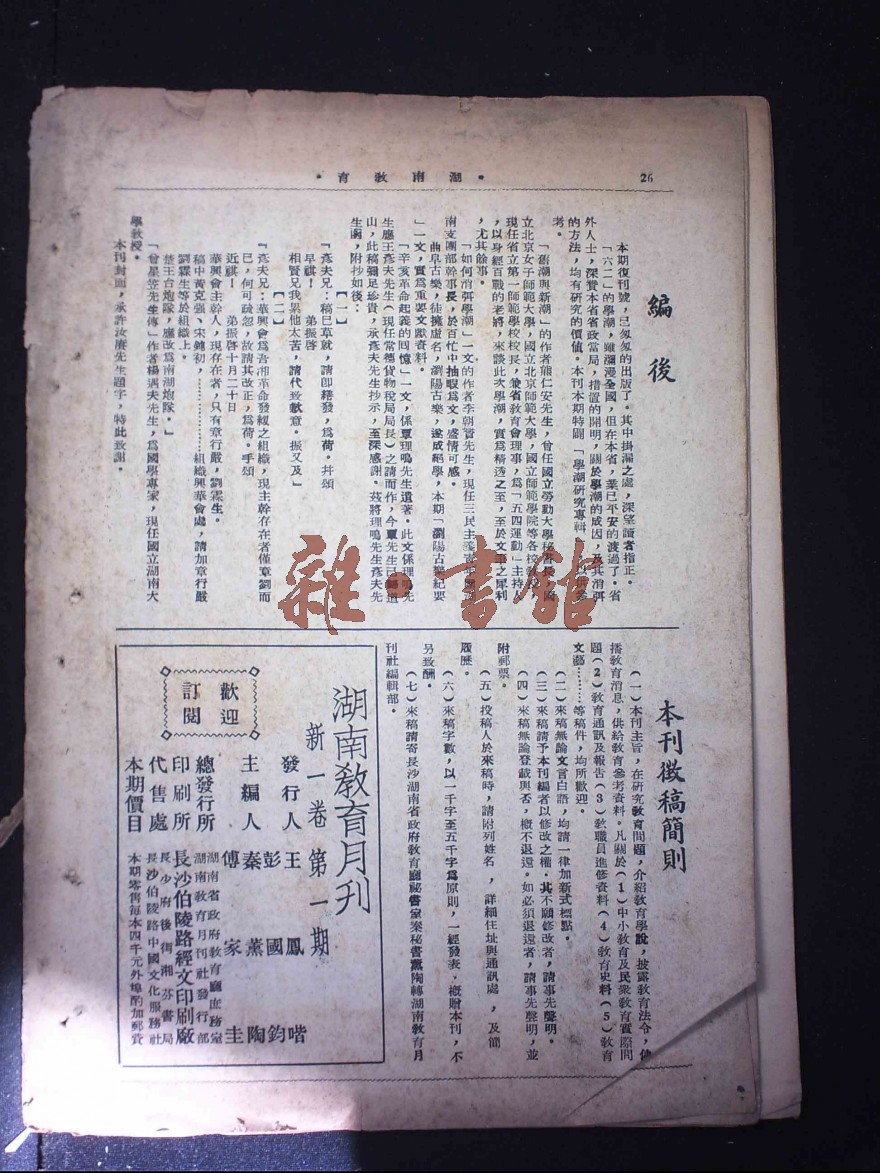 26
•湖南教育•
編後
本期復刊號，已匆匆的出版了。其中掛漏之處，深望讀者指正。
「六二」的學潮，雖瀰漫全國，但在本省，業已平安的渡過了。省
外人士，深贊本省省政當局，措置的開明，關於學潮的成因，及其消弭
的方法，均有研究的價值。本刊本期特闢「學潮研究專輯
考。
「舊潮與新潮」的作者熊仁安先生，曾任國立勞動大學秘書長，國
立北京女子師範大學，國立北京師範大學，國立師範學院等各校
現任省立第一師範學校校長，兼省教育會理事，為「五四運動」主持人
，以身經百戰的老將，來談此次學潮，實為精透之至，至於文筆之犀利
，尤其餘事。
「如何消弭學潮」一文的作者李朝晉先生，現任三民主義青年團湖
南支團部幹事長，於百忙中抽暇為文，盛情可感。
曲阜古樂，徒擁虛名，瀏陽古樂，遂成絕學，本期「瀏陽古樂紀要
」一文，實為重要文獻資料。
「辛亥革命起義的回憶」一文，係覃理鳴先生遺著。此文係理鳴先
生應王彥夫先生（現任常德貨物稅局局長）之請而作，今覃先生已歸道
山，此稿彌足珍貴，承彥夫先生抄示，至深感謝。茲將理鳴先生彥夫先
生函，附抄如後：
【一】
『彥夫兄：稿已草就，請卽繕發，為荷。幷頌
早祺！　弟振啓
相賢兄我累他太苦，請代致歉意。振又及』
【二】
『彥夫兄：華興會為吾湘革命發䡅之組織，現主幹存在者僅章劉而
已，何可疏忽，故請其改正，為荷。手頌
近祺！　弟振啓十月二十日
華興會主幹人，現存在者，只有章行嚴，劉霖生。
稿中黃克强、宋鈍初，………………組織興華會處，請加章行嚴
劉霖生等於組織上。
楚王台炮隊，應改為南湖炮隊。』
「曾星笠先生傳」作者楊遇夫先生，為國學專家，現任國立湖南大
學教授。
本刊封面，承許汝廉先生題字，特此致謝。
本刊徵稿簡則
（一）本刊主旨，在研究教育問題，介紹教育學說，披露教育法令，傳
播教育消息，供給教育參考資料。凡關於（1）中小教育及民衆教育實際問
題（2）教育通訊及報告（3）教職員進修資料（4）教育史料（5）教育
文藝………等稿件，均所歡迎。
（二）來稿無論文言白語，均請一律加新式標點。
（三）來稿請予本刊編者以修改之權，其不願修改者，請事先聲明。
（四）來稿無論登載與否，槪不退還。如必須退還者，請事先聲明，並
附郵票。
（五）投稿人於來稿時，請附列姓名，詳細住址與通訊處，及簡
履歷。
（六）來稿字數，以一千字至五千字為原則，一經發表，槪贈本刊，不
另致酬。
（七）來稿請寄長沙湖南省政府教育廳祕書室秦秘書薰陶轉湖南教育月
刊社編輯部。
湖南教育月刊
新一卷　第一期
發行人　王鳳喈
主編人　彭國鈞
秦薰陶
傅家圭
總發行所　湖南省政府教育廳庶務室
湖南教育月刊社發行部
印刷所　長沙伯陵路經文印刷廠
代售處　長沙府後街湘芬書局
長沙伯陵路中國文化服務社
本期價目　本期零售每本四千元外埠酌加郵費
歡迎
訂閱
雜•書館